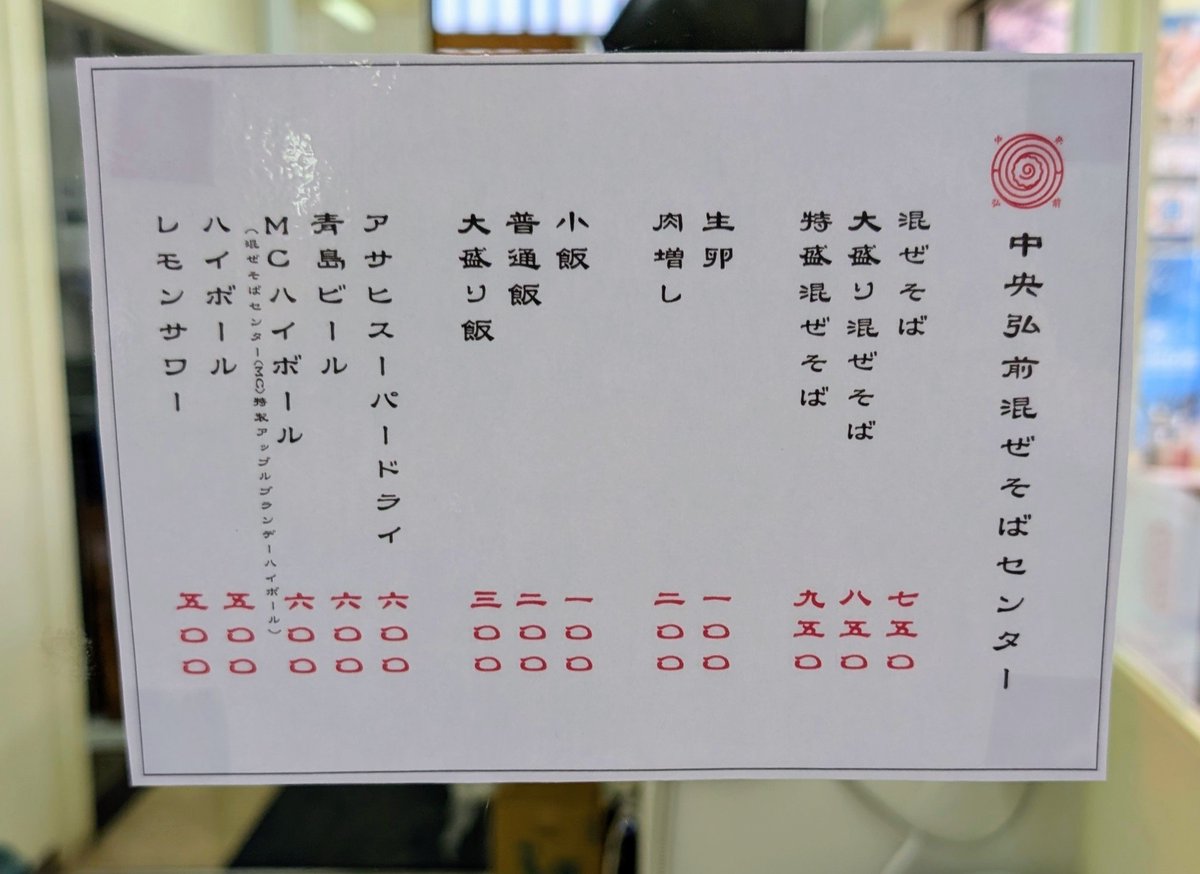 中央弘前
中央弘前混ぜそばセンター
混ぜそば 七五〇
大盛り混ぜそば 八五〇
特盛混ぜそば 九五〇
生卵 一〇〇
肉増し 二〇〇
小飯 一〇〇
普通飯 二〇〇
大盛り飯 三〇〇
アサヒスーパードライ 六〇〇
青島ビール 六〇〇
MCハイボール 六〇〇
(混ぜそばセンター(MC)特製アップルブランデーハイボール)
ハイボール 五〇〇
レモンサワー 五〇〇